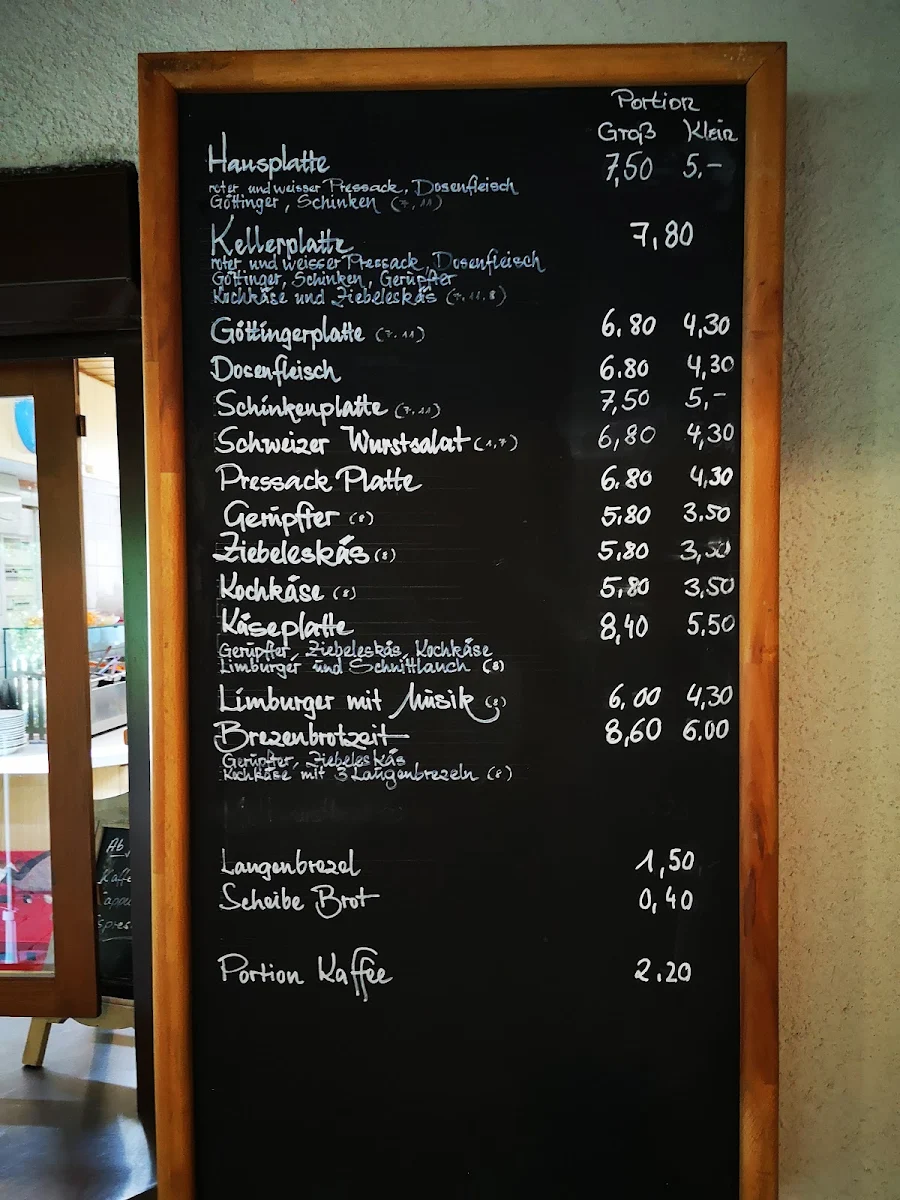 Portion
Groß Klein
Hausplatte 7,50 5.-
roter und weisser Pressack, Dosenfleisch
Göttinger, Schinken (7,11)
Kellerplatte 7,80
roter und weisser Pressack, Dosenfleisch
Göttinger, Schinken, Gerupfter
Kochkäse und Ziebeleskäs (7,11,8)
Göttingerplatte (7,11) 6.80 4,30
Dosenfleisch 6.80 4,30
Schinkenplatte (7,11) 7,50 5,-
Schweizer Wurstsalat (1,7) 6,80 4,30
Pressack Platte 6.80 4,30
Gerupfter (8) 5.80 3.50
Ziebeleskäs (8) 5.80 3,50
Kochkäse (8) 5,80 3,50
Käseplatte 8,40 5,50
Gerupfer, Ziebeleskäs, Kochkäse
Limburger und Schnittlauch (8)
Limburger mit Musik (8) 6,00 4,30
Brezenbrotzeit 8,60 6.00
Gerupfter, Ziebeleskäs
Kochkäse mit 3 Laugenbrezeln (8)
Laugenbrezel 1,50
Scheibe Brot 0,40
Portion Kaffee 2.20
Ab